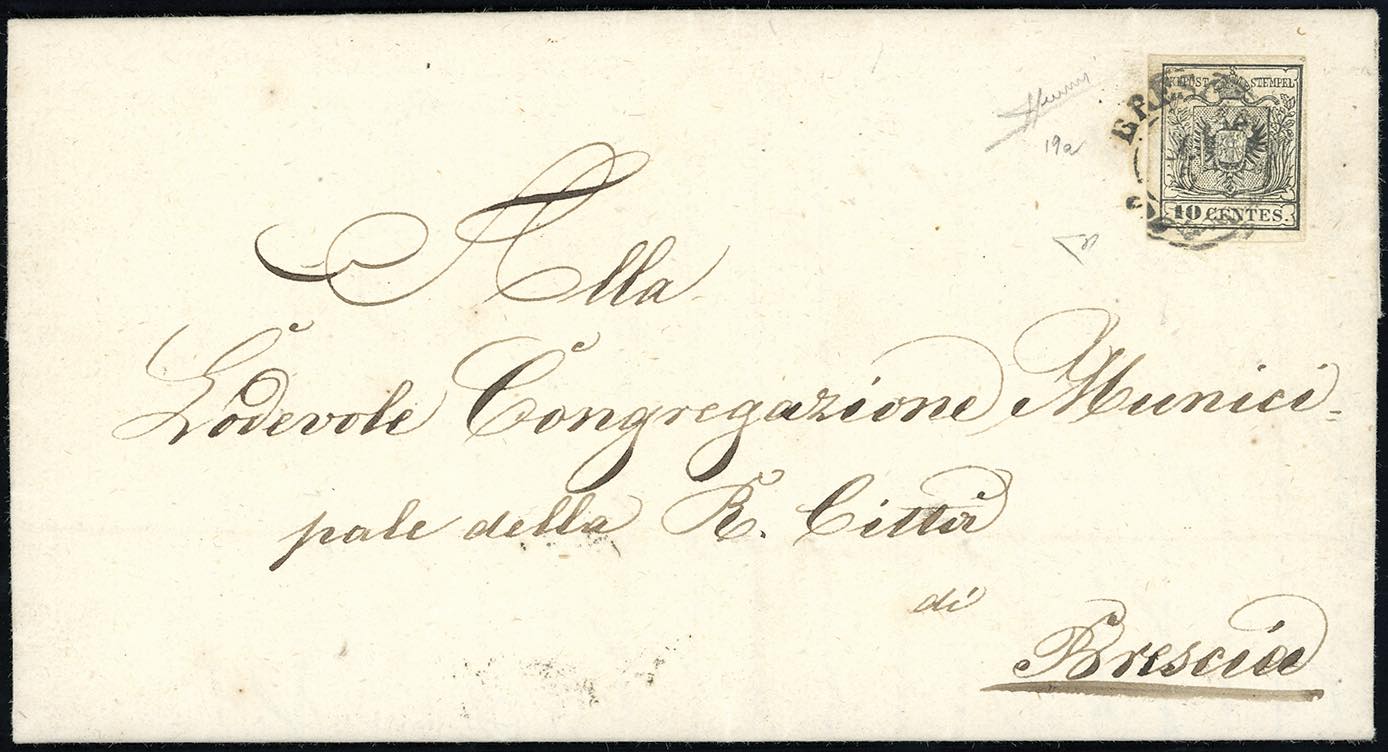 KKPOST-STEMPEL
BRES
10 CENTES.
19a
Alla
Lodevole Congregazione Munici-
pale della R. Città
di
Brescia